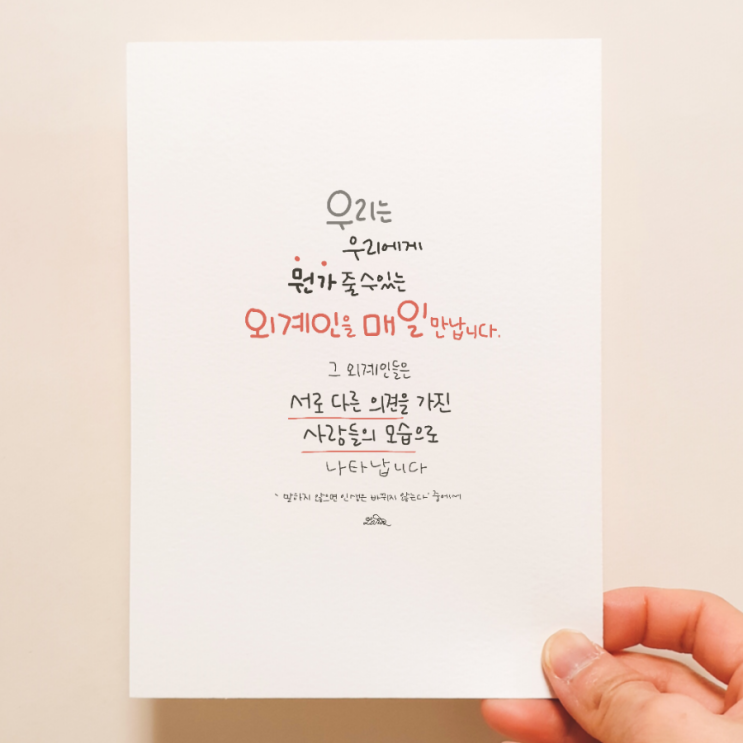 우리는
우리에게
뭔가 줄 수 있는
외계인을 매일 만납니다.
그 외계인들은
서로 다른 의견을 가진
사람들의 모습으로
나타납니다
" 말하지 않으면 인생은 바뀌지 않는다" 중에서